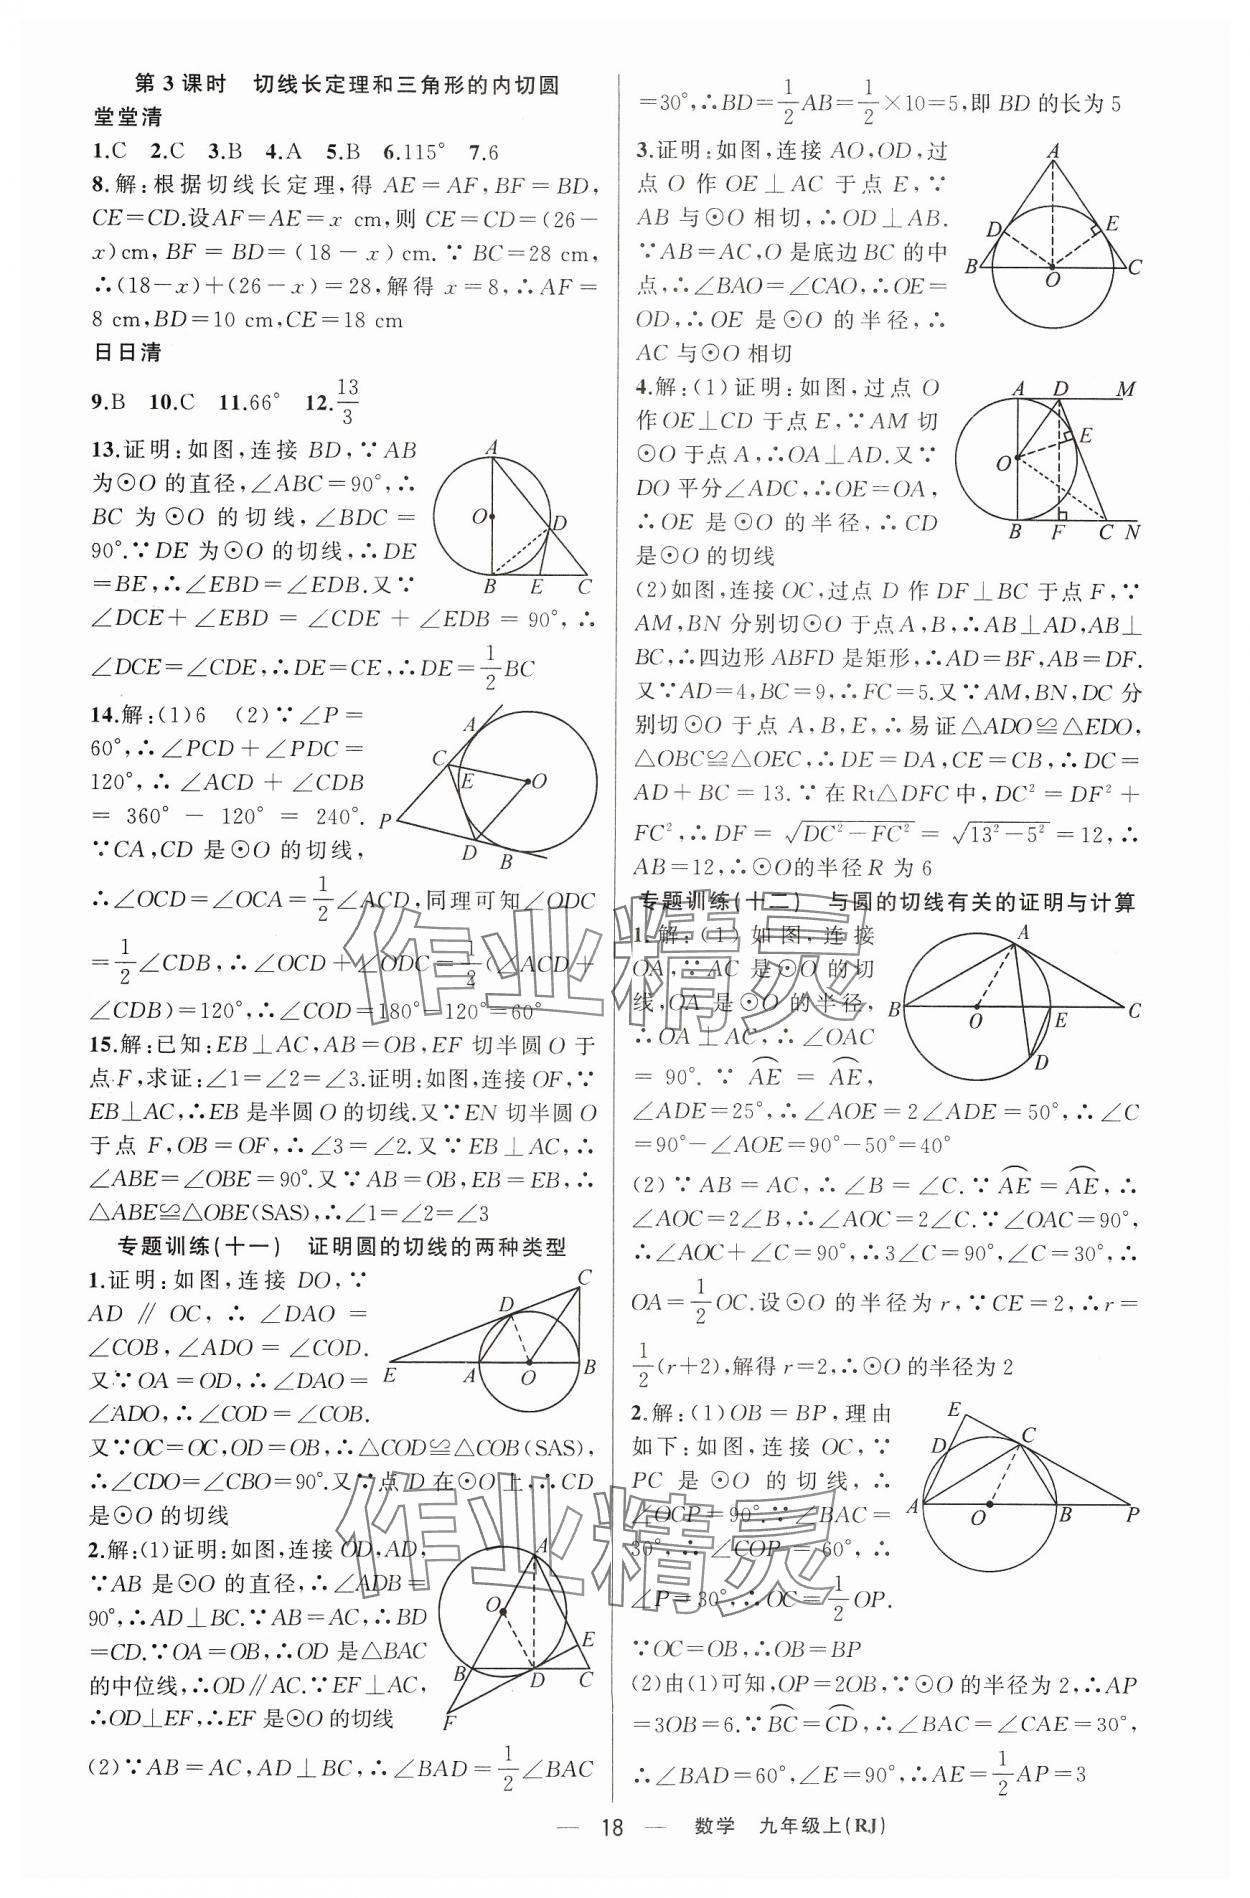 第3课时　切线长定理和三角形的内切圆
堂堂清
1.C　2.C　3.B　4.A　5.B　6.115°　7.6
8.解:根据切线长定理,得 AE=AF,BF=BD,
CE=CD.设AF=AE=x cm,则 CE=CD=(26-
x)cm,BF=BD=(18-x)cm.∵BC=28 cm,
∴(18-x)+(26-x)=28,解得 x=8,∴AF=
8 cm,BD=10 cm,CE=18 cm
日日清
9.B　10.C　11.66°　12.13/3
13.证明:如图,连接 BD,∵AB
为⊙O 的直径,∠ABC=90°,∴
BC 为 ⊙O 的切线,∠BDC=
90°.∵DE 为⊙O 的切线,∴DE
=BE,∴∠EBD=∠EDB.又∵
∠DCE+∠EBD=∠CDE+∠EDB=90°,∴
∠DCE=∠CDE,∴DE=CE,∴DE=1/2 BC
A
O
D
B E C
14.解:(1)6　(2)∵∠P=
60°,∴∠PCD+∠PDC=
120°,∴∠ACD+∠CDB
=360°-120°=240°.
∵CA,CD 是⊙O 的切线,
∴∠OCD=∠OCA=1/2∠ACD,同理可知∠ODC
=1/2∠CDB,∴∠OCD+∠ODC=1/2(∠ACD+
∠CDB)=120°,∴∠COD=180°-120°=60°
A
C
E O
P
D B
15.解:已知:EB⊥AC,AB=OB,EF 切半圆O 于
点F,求证:∠1=∠2=∠3.证明:如图,连接OF,∵
EB⊥AC,∴EB 是半圆 O 的切线.又∵EN 切半圆 O
于点 F,OB=OF,∴∠3=∠2.又∵EB⊥AC,∴
∠ABE=∠OBE=90°.又∵AB=OB,EB=EB,∴
△ABE≌△OBE(SAS),∴∠1=∠2=∠3
专题训练(十一)　证明圆的切线的两种类型
1.证明:如图,连接 DO,∵
AD∥OC,∴∠DAO=
∠COB,∠ADO=∠COD.
又∵OA=OD,∴∠DAO=
∠ADO,∴∠COD=∠COB.
又∵OC=OC,OD=OB,∴△COD≌△COB(SAS),
∴∠CDO=∠CBO=90°.又∵点 D 在⊙O 上,∴CD
是⊙O 的切线
C
D
E A O B
2.解:(1)证明:如图,连接OD,AD,
∵AB 是⊙O 的直径,∴∠ADB=
90°,∴AD⊥BC.∵AB=AC,∴BD
=CD.∵OA=OB,∴OD 是△BAC
的中位线,∴OD∥AC.∵EF⊥AC,
∴OD⊥EF,∴EF 是⊙O 的切线
(2)∵AB=AC,AD⊥BC,∴∠BAD=1/2∠BAC
A
O
E
B D C
F
=30°,∴BD=1/2 AB=1/2×10=5,即 BD 的长为 5
3.证明:如图,连接 AO,OD,过
点 O 作 OE⊥AC 于点 E,∵
AB 与⊙O 相切,∴OD⊥AB.
∵AB=AC,O 是底边 BC 的中
点,∴∠BAO=∠CAO,∴OE=
OD,∴OE 是⊙O 的半径,∴
AC 与⊙O 相切
A
D E
B O C
4.解:(1)证明:如图,过点 O
作OE⊥CD 于点E,∵AM 切
⊙O 于点A,∴OA⊥AD.又∵
DO 平分∠ADC,∴OE=OA,
∴OE 是⊙O 的半径,∴CD
是⊙O 的切线
A D M
E
O
B F C N
(2)如图,连接 OC,过点 D 作 DF⊥BC 于点 F,∵
AM,BN 分别切⊙O 于点A,B,∴AB⊥AD,AB⊥
BC,∴四边形 ABFD 是矩形,∴AD=BF,AB=DF.
又∵AD=4,BC=9,∴FC=5.又∵AM,BN,DC 分
别切⊙O 于点 A,B,E,∴易证△ADO≌△EDO,
△OBC≌△OEC,∴DE=DA,CE=CB,∴DC=
AD+BC=13.∵在 Rt△DFC 中,DC²=DF²+
FC²,∴DF=√(DC²-FC²)=√(13²-5²)=12,∴
AB=12,∴⊙O的半径 R 为 6
专题训练(十二)　与圆的切线有关的证明与计算
1.解:(1)如图,连接
OA,∵AC 是⊙O 的切
线,OA 是⊙O 的半径,
∴OA⊥AC,∴∠OAC
=90°.∵⌒AE=⌒AE,
∠ADE=25°,∴∠AOE=2∠ADE=50°,∴∠C
=90°-∠AOE=90°-50°=40°
A
B O E C
D
(2)∵AB=AC,∴∠B=∠C.∵⌒AE=⌒AE,∴
∠AOC=2∠B,∴∠AOC=2∠C.∵∠OAC=90°,
∴∠AOC+∠C=90°,∴3∠C=90°,∠C=30°,∴
OA=1/2 OC.设⊙O 的半径为 r,∵CE=2,∴r=
1/2(r+2),解得 r=2,∴⊙O 的半径为 2
2.解:(1)OB=BP,理由
如下:如图,连接 OC,∵
PC 是⊙O 的切线,∴
∠OCP=90°.∵∠BAC=
30°,∴∠COP=60°,∴
∠P=30°,∴OC=1/2 OP.
∵OC=OB,∴OB=BP
E
D C
A O B P
(2)由(1)可知,OP=2OB,∵⊙O 的半径为 2,∴AP
=3OB=6.∵⌒BC=⌒CD,∴∠BAC=∠CAE=30°,
∴∠BAD=60°,∠E=90°,∴AE=1/2 AP=3
作业精灵
作业精灵
— 18 —　数学　九年级上(RJ)